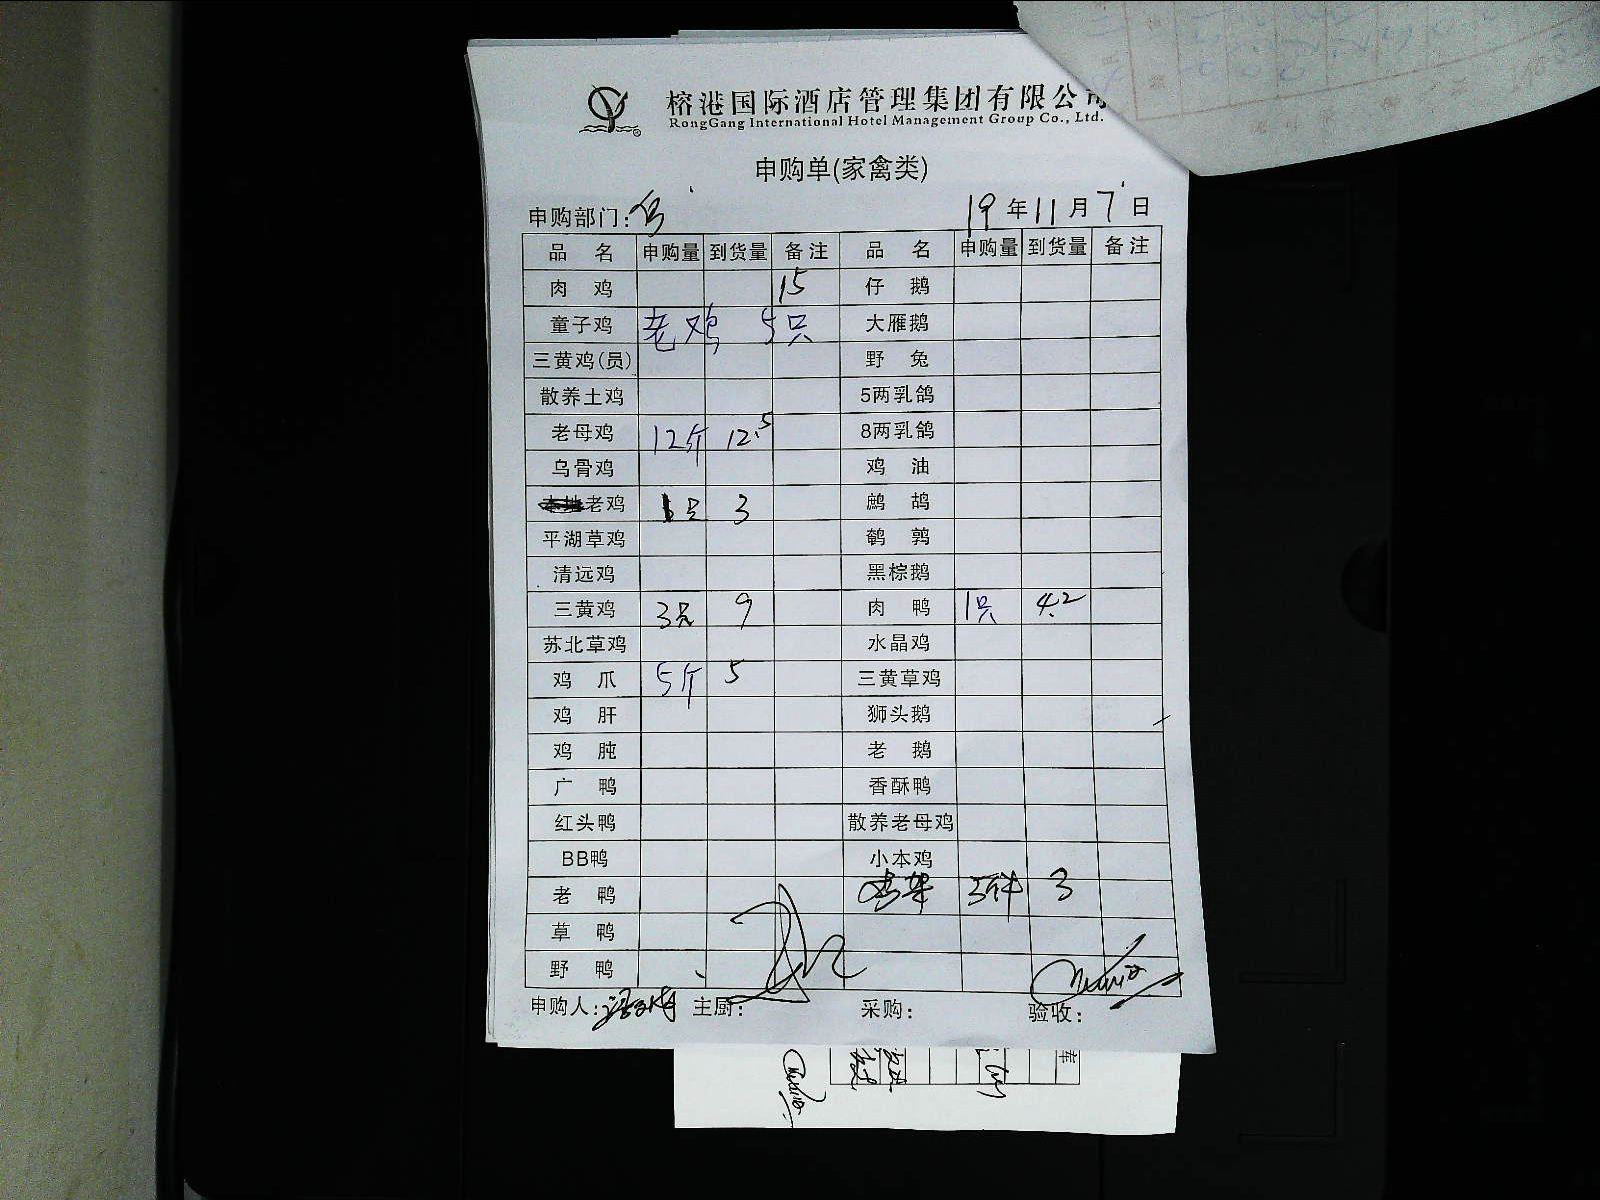 榕港国际酒店管理集团有限公司
RongGang International Hotel Management Group Co., Ltd.
申购单(家禽类)
申购部门: 19年11月7日
品名 申购量 到货量 备注 品名 申购量 到货量 备注
肉鸡 15 仔鹅
童子鸡 老鸡 5只 大雁鹅
三黄鸡(员) 野兔
散养土鸡 5两乳鸽
老母鸡 12斤 12.5 8两乳鸽
乌骨鸡 鸡油
老鸡 只 3 鹧鸪
平湖草鸡 鹌鹑
清远鸡 黑棕鹅
三黄鸡 3只 9 肉鸭 1只 4.2
苏北草鸡 水晶鸡
鸡爪 5斤 5 三黄草鸡
鸡肝 狮头鹅
鸡肫 老鹅
广鸭 香酥鸭
红头鸭 散养老母鸡
BB鸭 小本鸡
老鸭 鸡架 3
草鸭
野鸭
申购人: 主厨: 采购: 验收: